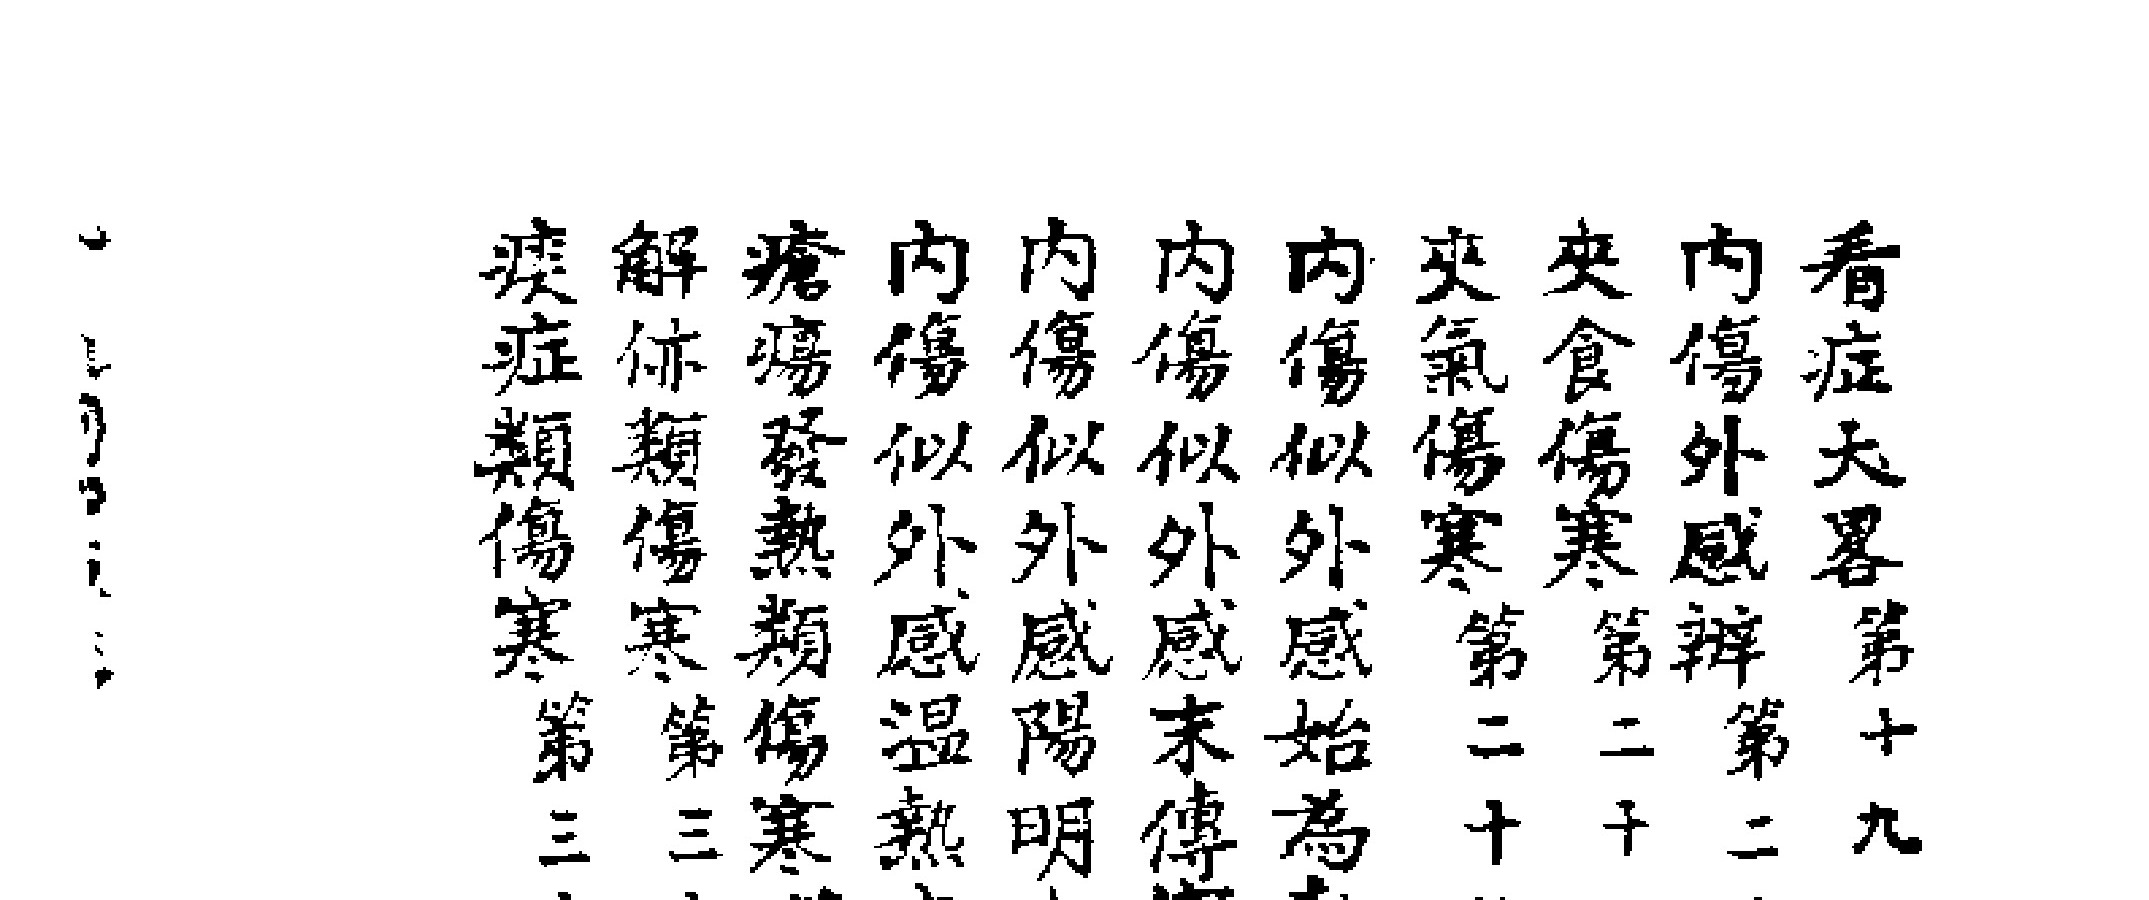 看症大畧第十九
內傷外感辨第二
夾食傷寒第二十
夾氣傷寒第二十
內傷似外感始為
內傷似外感末傳
內傷似外感陽明
內傷似外感溫熱
瘡瘍發熱類傷寒
解㑊類傷寒第三
痰症類傷寒第三